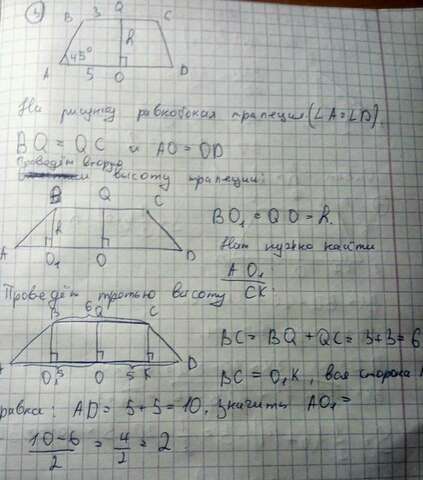 1
B 3 Q C
h
45°
A 5 O D
На рисунку равнобокая трапеция. (∠A=∠D).
BQ = QC и AO = OD
Проведём вторую
высоту трапеции:
B Q C
h
A O₁ O D
BO₁ = QO = h.
Нам нужно найти
AO₁
CK
Проведём третью высоту
B 6 Q C
O₁ 5 O 5 K D
BC = BQ + QC = 3+3 = 6
BC = O₁K, вся сторона
равна: AD = 5+5 = 10, значить AO₁ =
10-6 / 2 = 4 / 2 = 2